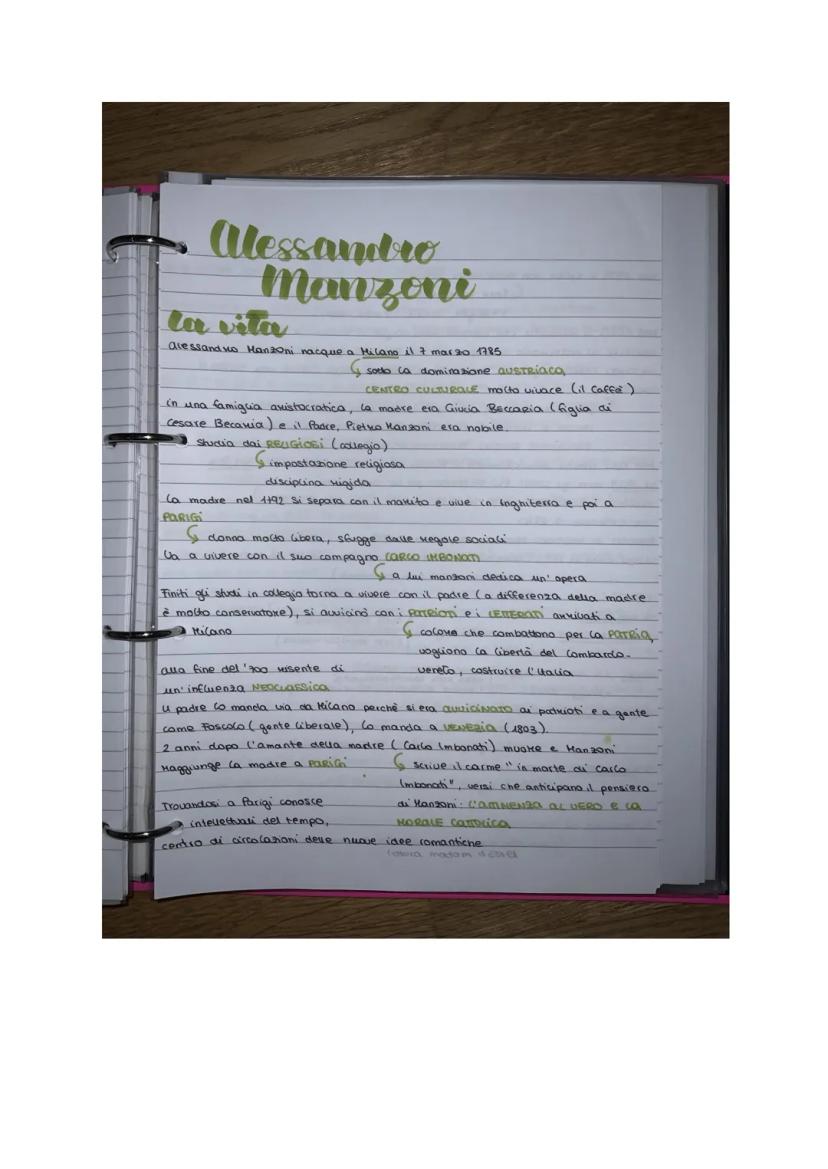 Alessandro
Manzoni
la vita
Alessandro Manzoni nacque a Milano il 7 marzo 1785
sotto la dominazione AUSTRIACA
CENTRO CULTURALE molto vivace (il Caffè)
in una famiglia aristocratica, la madre era Giulia Beccaria (figlia di
Cesare Beccaria) e il Padre, Pietro Manzoni era nobile.
Studia dai RELIGIOSI (collegio)
impostazione religiosa
disciplina rigida
la madre nel 1792 si separa con il marito e vive in Inghilterra e poi a
PARIGI
donna molto libera, sfugge dalle regole sociali
Va a vivere con il suo compagno CARLO IMBONATI
a lui manzoni dedica un'opera
Finiti gli studi in collegio torna a vivere con il padre (a differenza della madre
è molto conservatore), si avvicinò con i PATRIOTI e i LETTERATI arrivati a
Milano
coloro che combattono per la PATRIA,
vogliono la libertà del Lombardo-
alla fine del '700 risente di
veneto, costruire l'Italia
un'influenza NEOCLASSICA
Il padre lo manda via da Milano perchè si era AVVICINATO ai patrioti e a gente
come Foscolo (gente liberale), lo manda a VENEZIA (1803).
2 anni dopo l'amante della madre (Carlo Imbonati) muore e Manzoni
raggiunge la madre a PARIGI
scrive il carme "in morte di Carlo
Imbonati", versi che anticipano il pensiero
Trovandosi a Parigi conosce
di Manzoni: L'ATTINENZA AL VERO E LA
intellettuali del tempo,
MORALE CATTOLICA
centro di circolazioni delle nuove idee romantiche